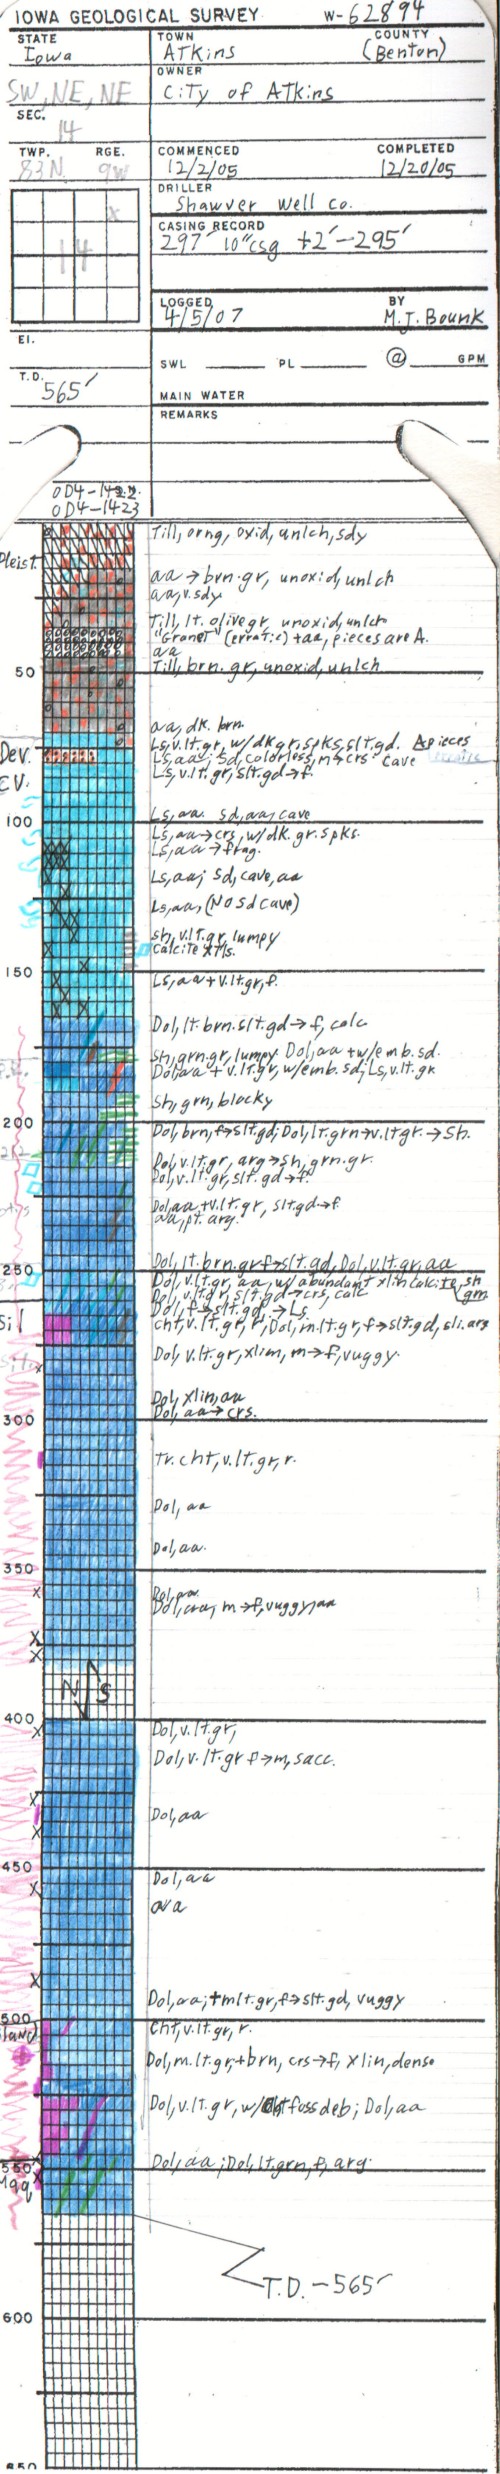 IOWA GEOLOGICAL SURVEY W-62894
STATE
Iowa
TOWN
Atkins
COUNTY
(Benton)
OWNER
City of Atkins
SW, NE, NE
SEC.
14
TWP. RGE.
83N 9W
COMMENCED
12/2/05
COMPLETED
12/20/05
DRILLER
Shawver Well Co.
CASING RECORD
297' 10" csg +2'-295'
x
14
LOGGED
4/5/07
BY
M.J. Bounk
El.
SWL PL @ GPM
T.D.
565'
MAIN WATER
REMARKS
OD4-1422
OD4-1423
Till, orng, oxid, unlch, sdy
Pleist.
aa → brn-gr, unoxid, unlch
aa, v. sdy
Till, lt. olive gr, unoxid, unlch
"Granet" (erratic) + aa, pieces are A.
aa
Till, brn. gr, unoxid, unlch
50
aa, dk. brn.
Ls, v.lt.gr, w/dk gr. spks, slt.gd. A pieces
Dev.
Ls, aa; sd, colorless, m→crs cave
Ls, v.lt.gr, slt.gd→f.
CV.
Ls, aa. sd, aa, cave
100
Ls, aa→crs, w/dk. gr. spks.
Ls, aa→frag.
Ls, aa; sd, cave, aa
Ls, aa, (No sd cave)
sh, v.lt.gr, lumpy
calcite xtls.
150
Ls, aa + v.lt.gr, f.
Dol, lt. brn. slt.gd→f, calc
Sh, grn.gr, lumpy. Dol, aa + w/emb. sd.
Dol, aa + v.lt.gr, w/emb. sd; Ls, v.lt.gr
Sh, grn, blocky
200
Dol, brn, f→slt.gd; Dol, lt.grn→v.lt gr. → Sh.
Dol, v.lt.gr, arg→sh, grn.gr.
Dol, v.lt.gr, slt.gd→f.
Dol, aa + v.lt.gr, slt.gd→f.
aa, pt. arg.
250
Dol, lt. brn.gr f→slt.gd, Dol, v.lt.gr, aa
Dol, v.lt.gr, aa, w/ abundant xlin calcite, sh grn
Dol, v.lt.gr, slt.gd→crs, calc
Dol, f→slt.gd → Ls
Sil
cht, v.lt.gr, r; Dol, m.lt.gr, f→slt.gd, sli. arg
Dol, v.lt.gr, xlin, m→f, vuggy.
Dol, xlin, aa
300
Dol, aa→crs.
tr. cht, v.lt.gr, r.
Dol, aa
Dol, aa.
350
Dol, aa.
Dol, aa, m→f, vuggy, aa
N S
400
Dol, v.lt.gr,
Dol, v.lt.gr f→m, sacc.
Dol, aa
450
Dol, aa
aa
Dol, aa; + m lt.gr, f→slt.gd, vuggy
500
cht, v.lt.gr, r.
Dol, m.lt.gr, + brn, crs→f, xlin, dense
Dol, v.lt.gr, w/ foss deb; Dol, aa
Dol, aa; Dol, lt.grn, f, arg.
550
Maq
T.D. - 565'
600
650